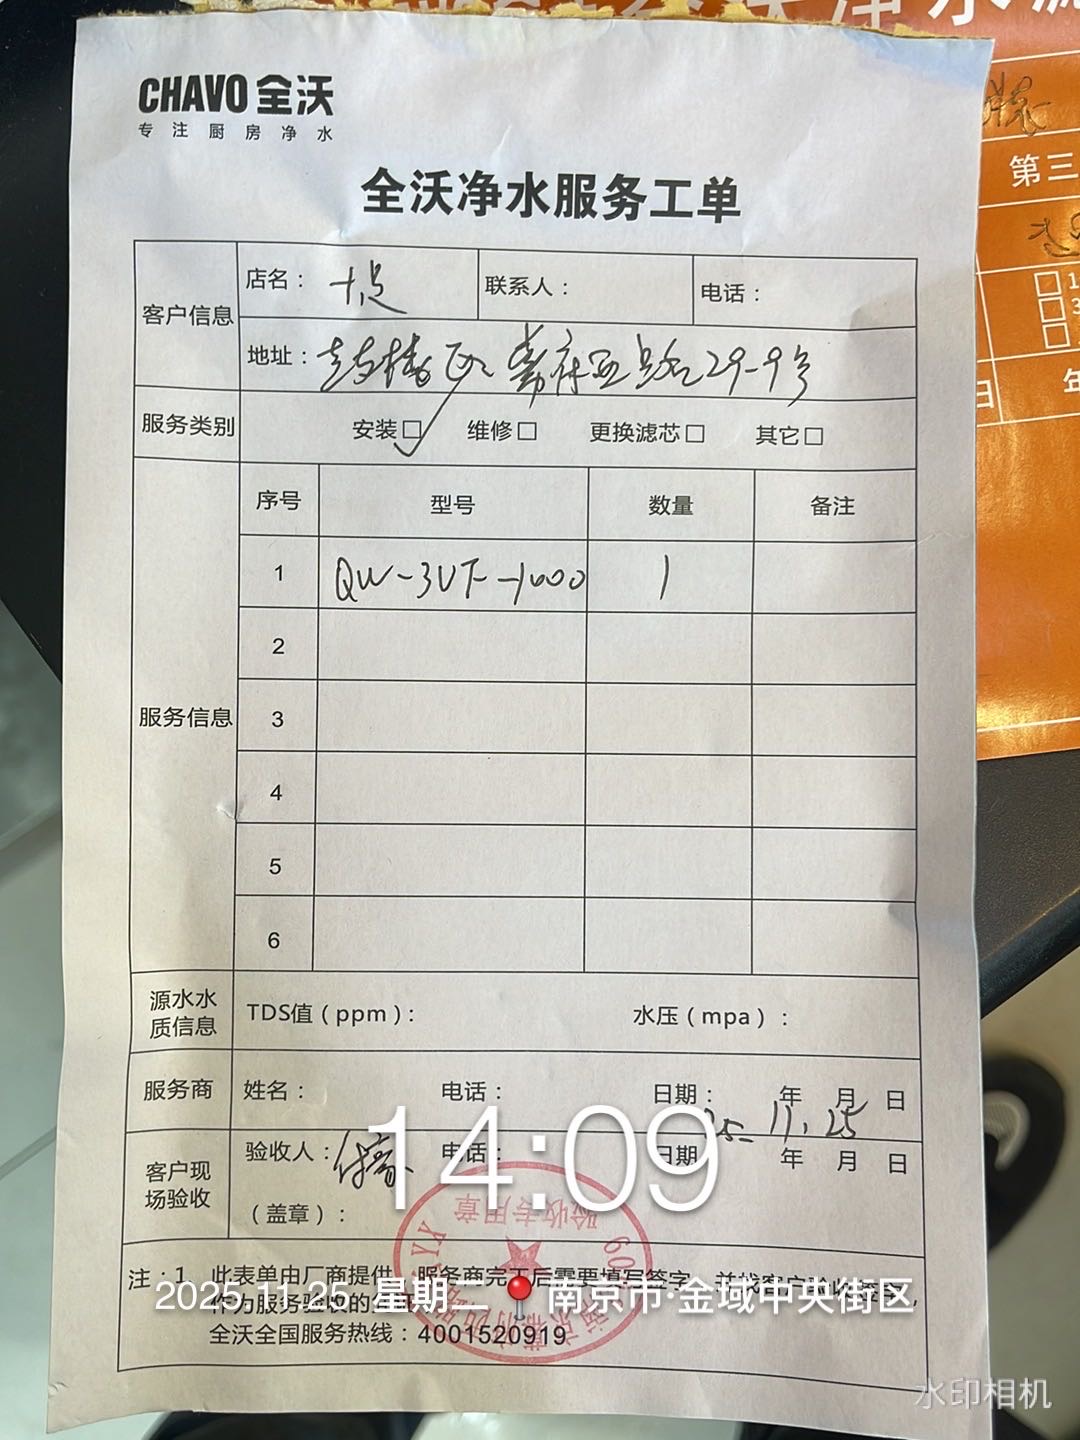 CHAVO 全沃
专注厨房净水
全沃净水服务工单
客户信息
店名：十点
联系人：
电话：
地址：29-9号
服务类别
安装□ 维修□ 更换滤芯□ 其它□
服务信息
序号 型号 数量 备注
1 QW-3UF-1000 1
2
3
4
5
6
源水水质信息
TDS值（ppm）： 水压（mpa）：
服务商
姓名： 电话： 日期： 年 月 日
25.11.25
客户现场验收
验收人： 电话： 日期 年 月 日
（盖章）：
验收专用章
注：1、此表单由厂商提供，服务商完工后需要填写签字，并找客户验收签字，
作为服务验收的
全沃全国服务热线：4001520919
14:09
2025.11.25 星期二 南京市·金域中央街区
水印相机
第三
年
日